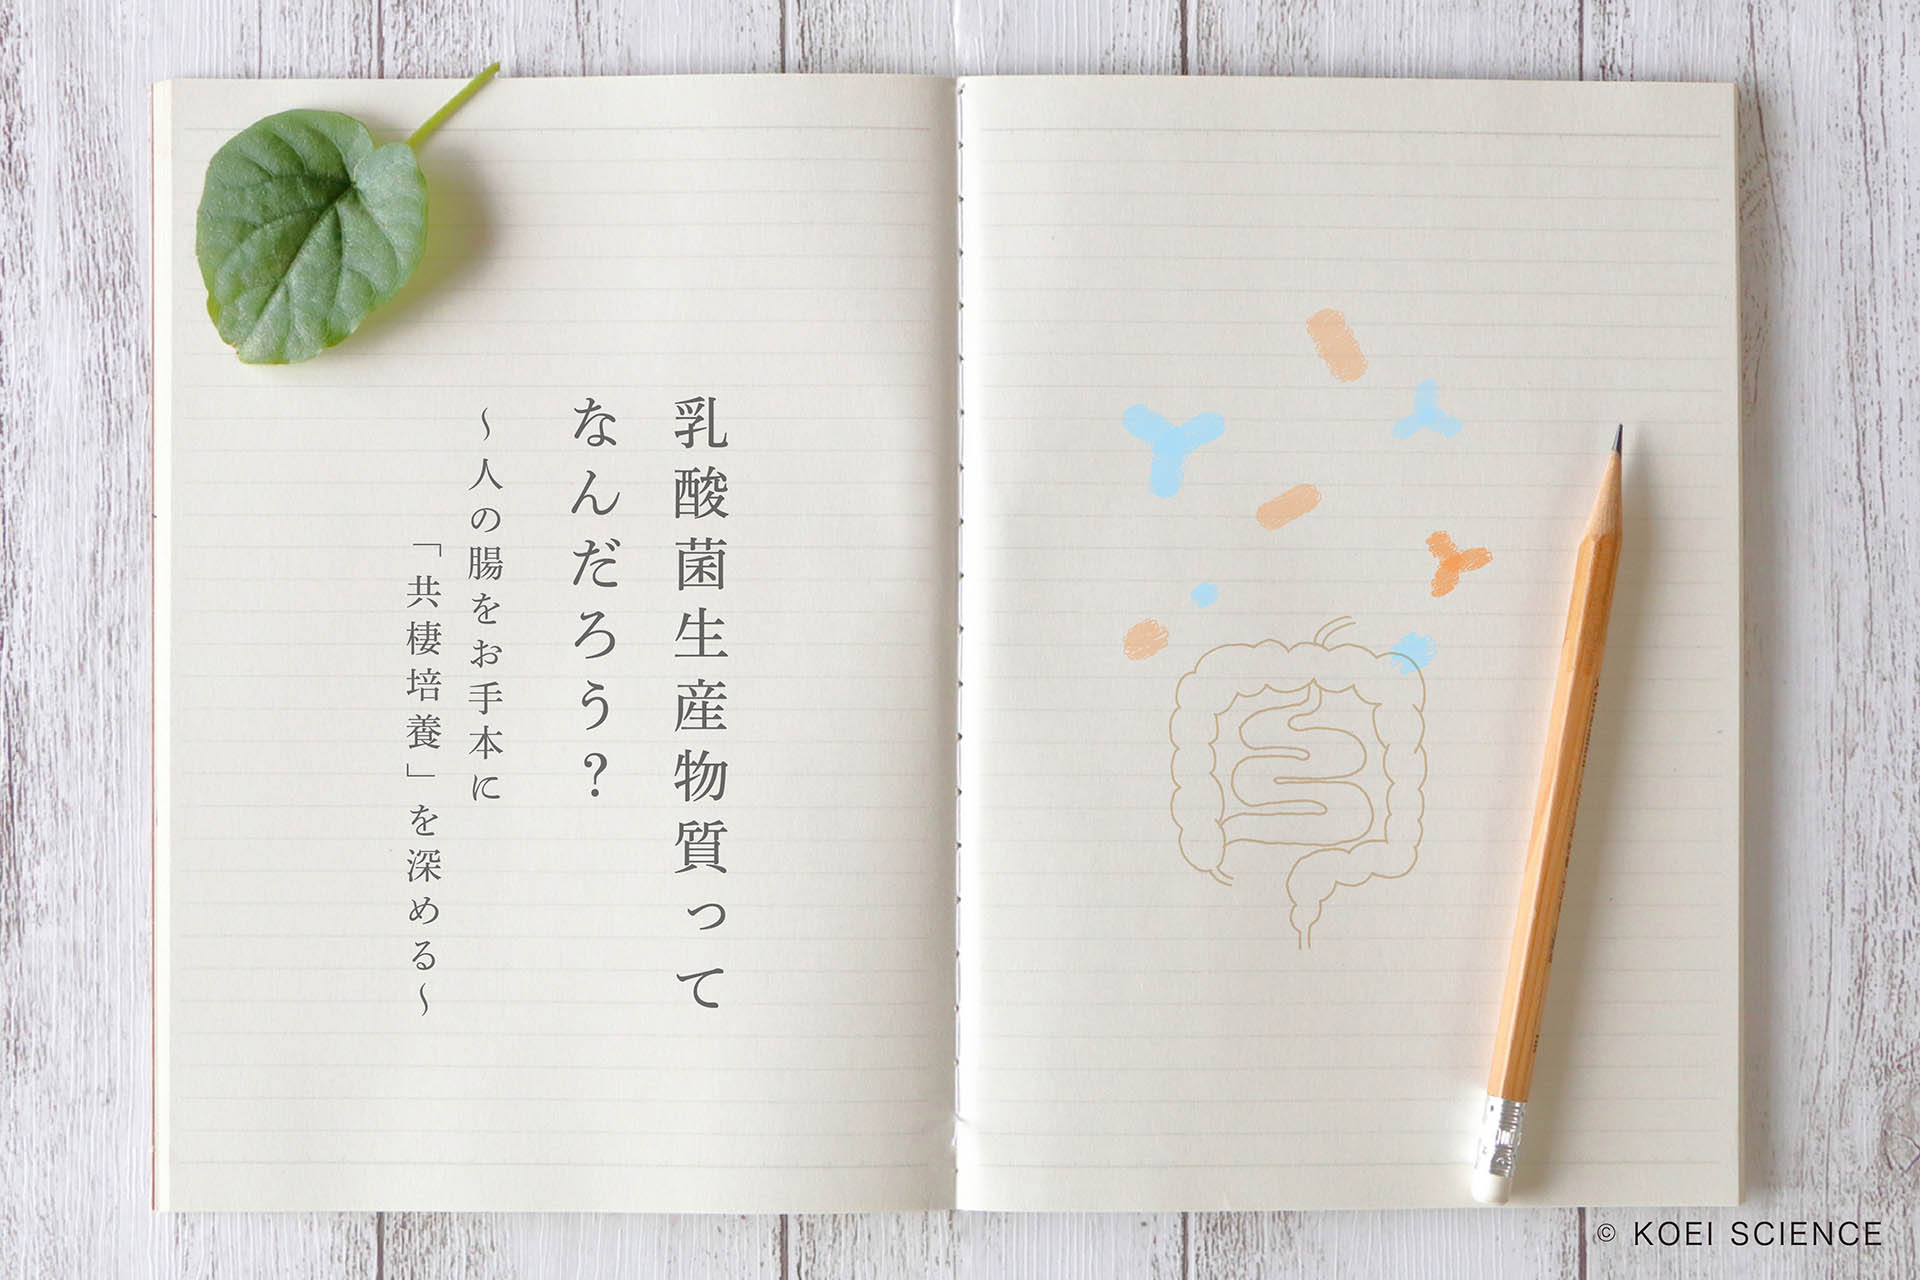 乳酸菌生産物質って
なんだろう？
～人の腸をお手本に
「共棲培養」を深める～
© KOEI SCIENCE